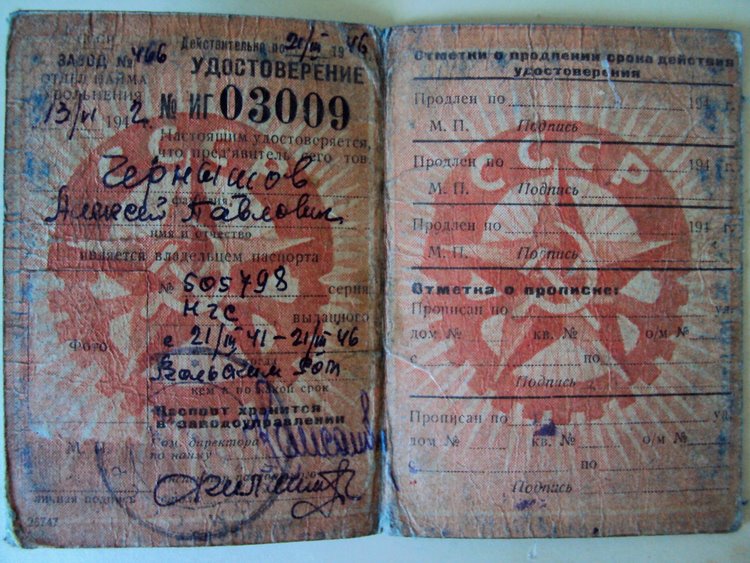 СССР
ЗАВОД № 466
ОТДЕЛ НАЙМА
УВОЛЬНЕНИЯ
13/VI 1942 г.
Действительно по 21/III 1946
УДОСТОВЕРЕНИЕ
№ ИГ 03009
Настоящим удостоверяется,
что пред'явитель сего тов.
Чернышов
фамилия
Алексей Павлович
имя и отчество
является владельцем паспорта
№ 605798 серия
НГС выданного
с 21/III 41 – 21/III 46
Вольским
кем и по какой срок
Фото
Паспорт хранится
в заводоуправлении
Пом. директора
по найму
М. П.
личная подпись
26747
Отметки о продлении срока действия
удостоверения
Продлен по 194
М. П. Подпись
СССР
Продлен по 194
М. П. Подпись
Продлен по 194
М. П. Подпись
Отметка о прописке:
Прописан по ул.
дом № кв. № о/м №
с по
Подпись
Прописан по ул.
дом № кв. № о/м №
с по
Подпись